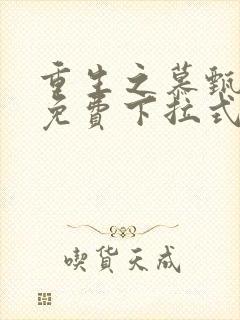 重生之慕甄
免费下拉式
喫货天成